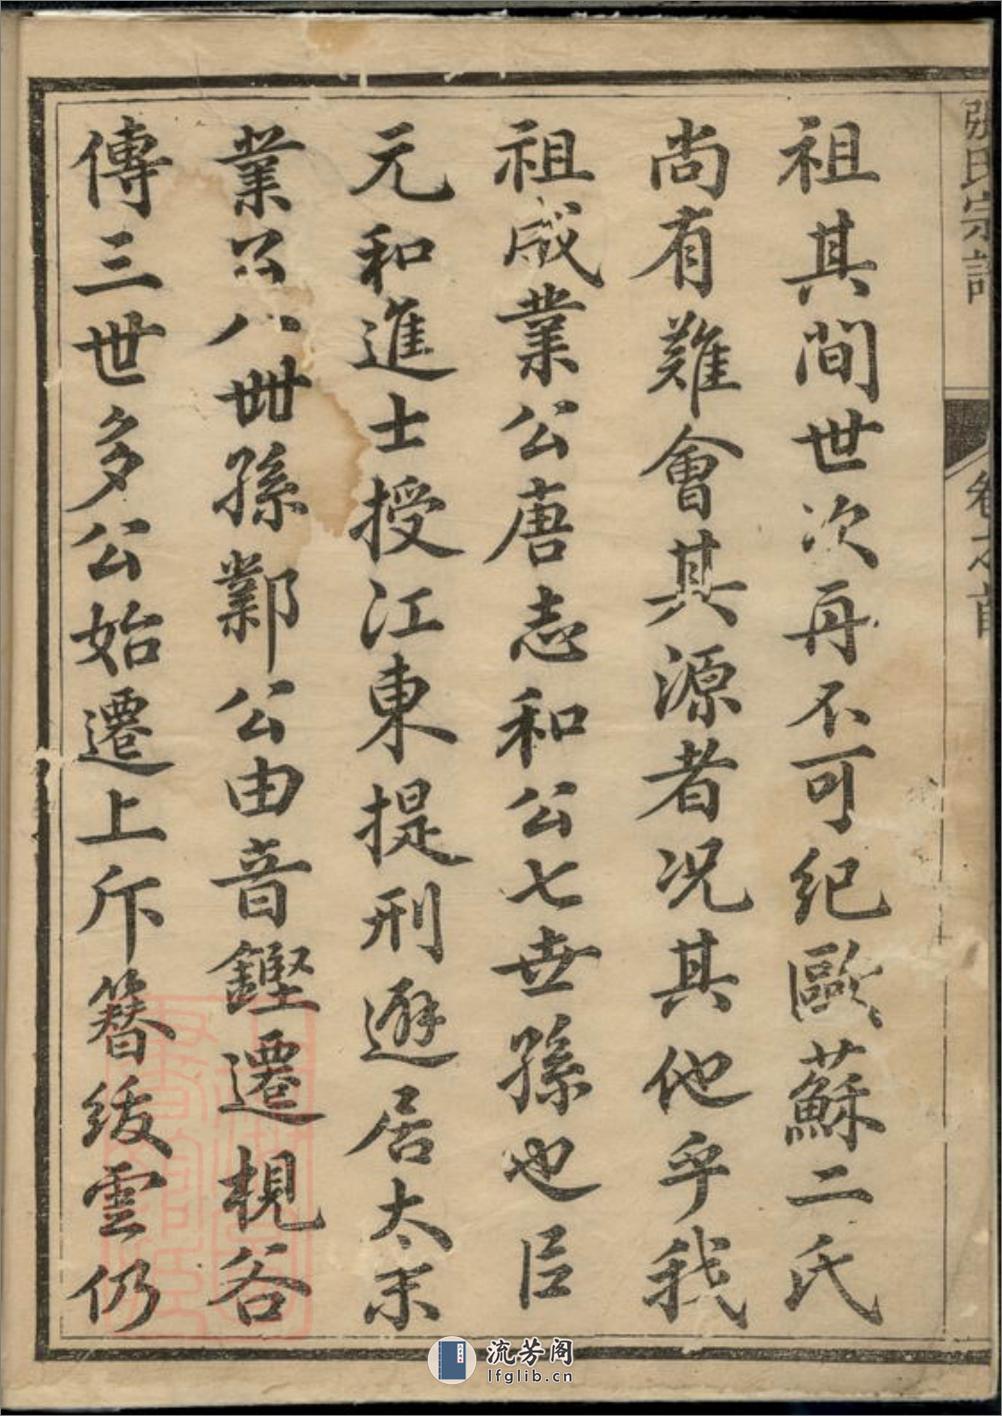 張氏宗譜
卷之首
祖其間世次再不可紀歐蘇二氏
尚有難會其源者况其他乎我
祖成業公唐志和公七世孫也臣
元和進士授江東提刑遊居太末
業公八世孫鄴公由音鏗遷梘谷
傳三世多公始遷上斥簪紱雲仍
流芳阁
lfglib.cn